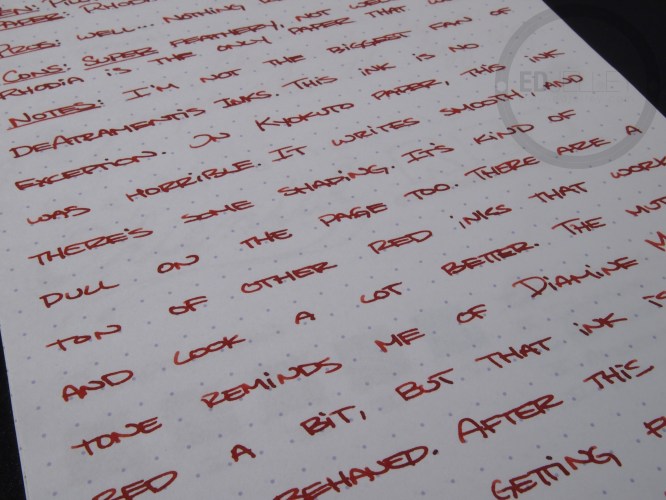 PAPER: RHODIA
PROS: WELL... NOTHING
CONS: SUPER FEATHERY, NOT
RHODIA IS THE ONLY PAPER THAT
NOTES: I'M NOT THE BIGGEST FAN OF
DEATRAMENTIS INKS. THIS INK IS NO
EXCEPTION. ON KYOKUTO PAPER, THIS INK
WAS HORRIBLE. IT WRITES SMOOTH, AND
THERE'S SOME SHADING. IT'S KIND OF
DULL ON THE PAGE TOO. THERE ARE A
TON OF OTHER RED INKS THAT WORK
AND LOOK A LOT BETTER. THE
TONE REMINDS ME OF DIAMINE
RED A BIT, BUT THAT INK IS
BEHAVED. AFTER THIS
GETTING